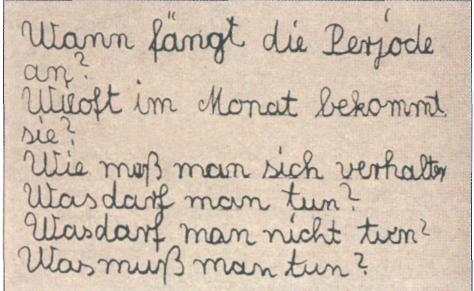 Wann fängt die Perjode
an?
Wieoft im Monat bekommt
sie?
Wie muß man sich verhalten
Wasdarf man tun?
Wasdarf man nicht tun?
Was muß man tun?